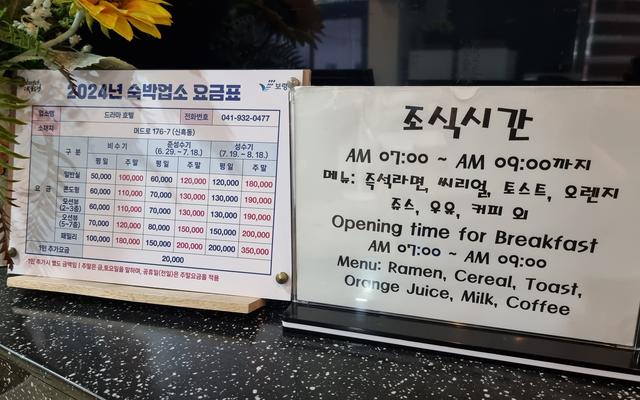 보령
2024년 숙박업소 요금표
업소명 드라마 호텔 전화번호 041-932-0477
소재지 머드로 176-7 (신흑동)
구 분 비수기 준성수기 (6. 29. ~ 7. 18.) 성수기 (7. 19. ~ 8. 18.)
평일 주말 평일 주말 평일 주말
요 금
일반실 50,000 100,000 60,000 120,000 120,000 180,000
콘도형 60,000 110,000 70,000 130,000 130,000 190,000
오션뷰 (2~3층) 60,000 110,000 70,000 130,000 130,000 190,000
오션뷰 (5~7층) 70,000 120,000 80,000 150,000 150,000 200,000
패밀리 100,000 180,000 150,000 200,000 200,000 350,000
1인 추가요금 20,000
1인 추가시 별도 금액임 | 주말은 금,토요일을 말하며, 공휴일(전일)은 주말요금을 적용
조식시간
AM 07:00 ~ AM 09:00까지
메뉴: 즉석라면, 씨리얼, 토스트, 오렌지
쥬스, 우유, 커피 외
Opening time for Breakfast
AM 07:00 ~ AM 09:00
Menu: Ramen, Cereal, Toast,
Orange Juice, Milk, Coffee